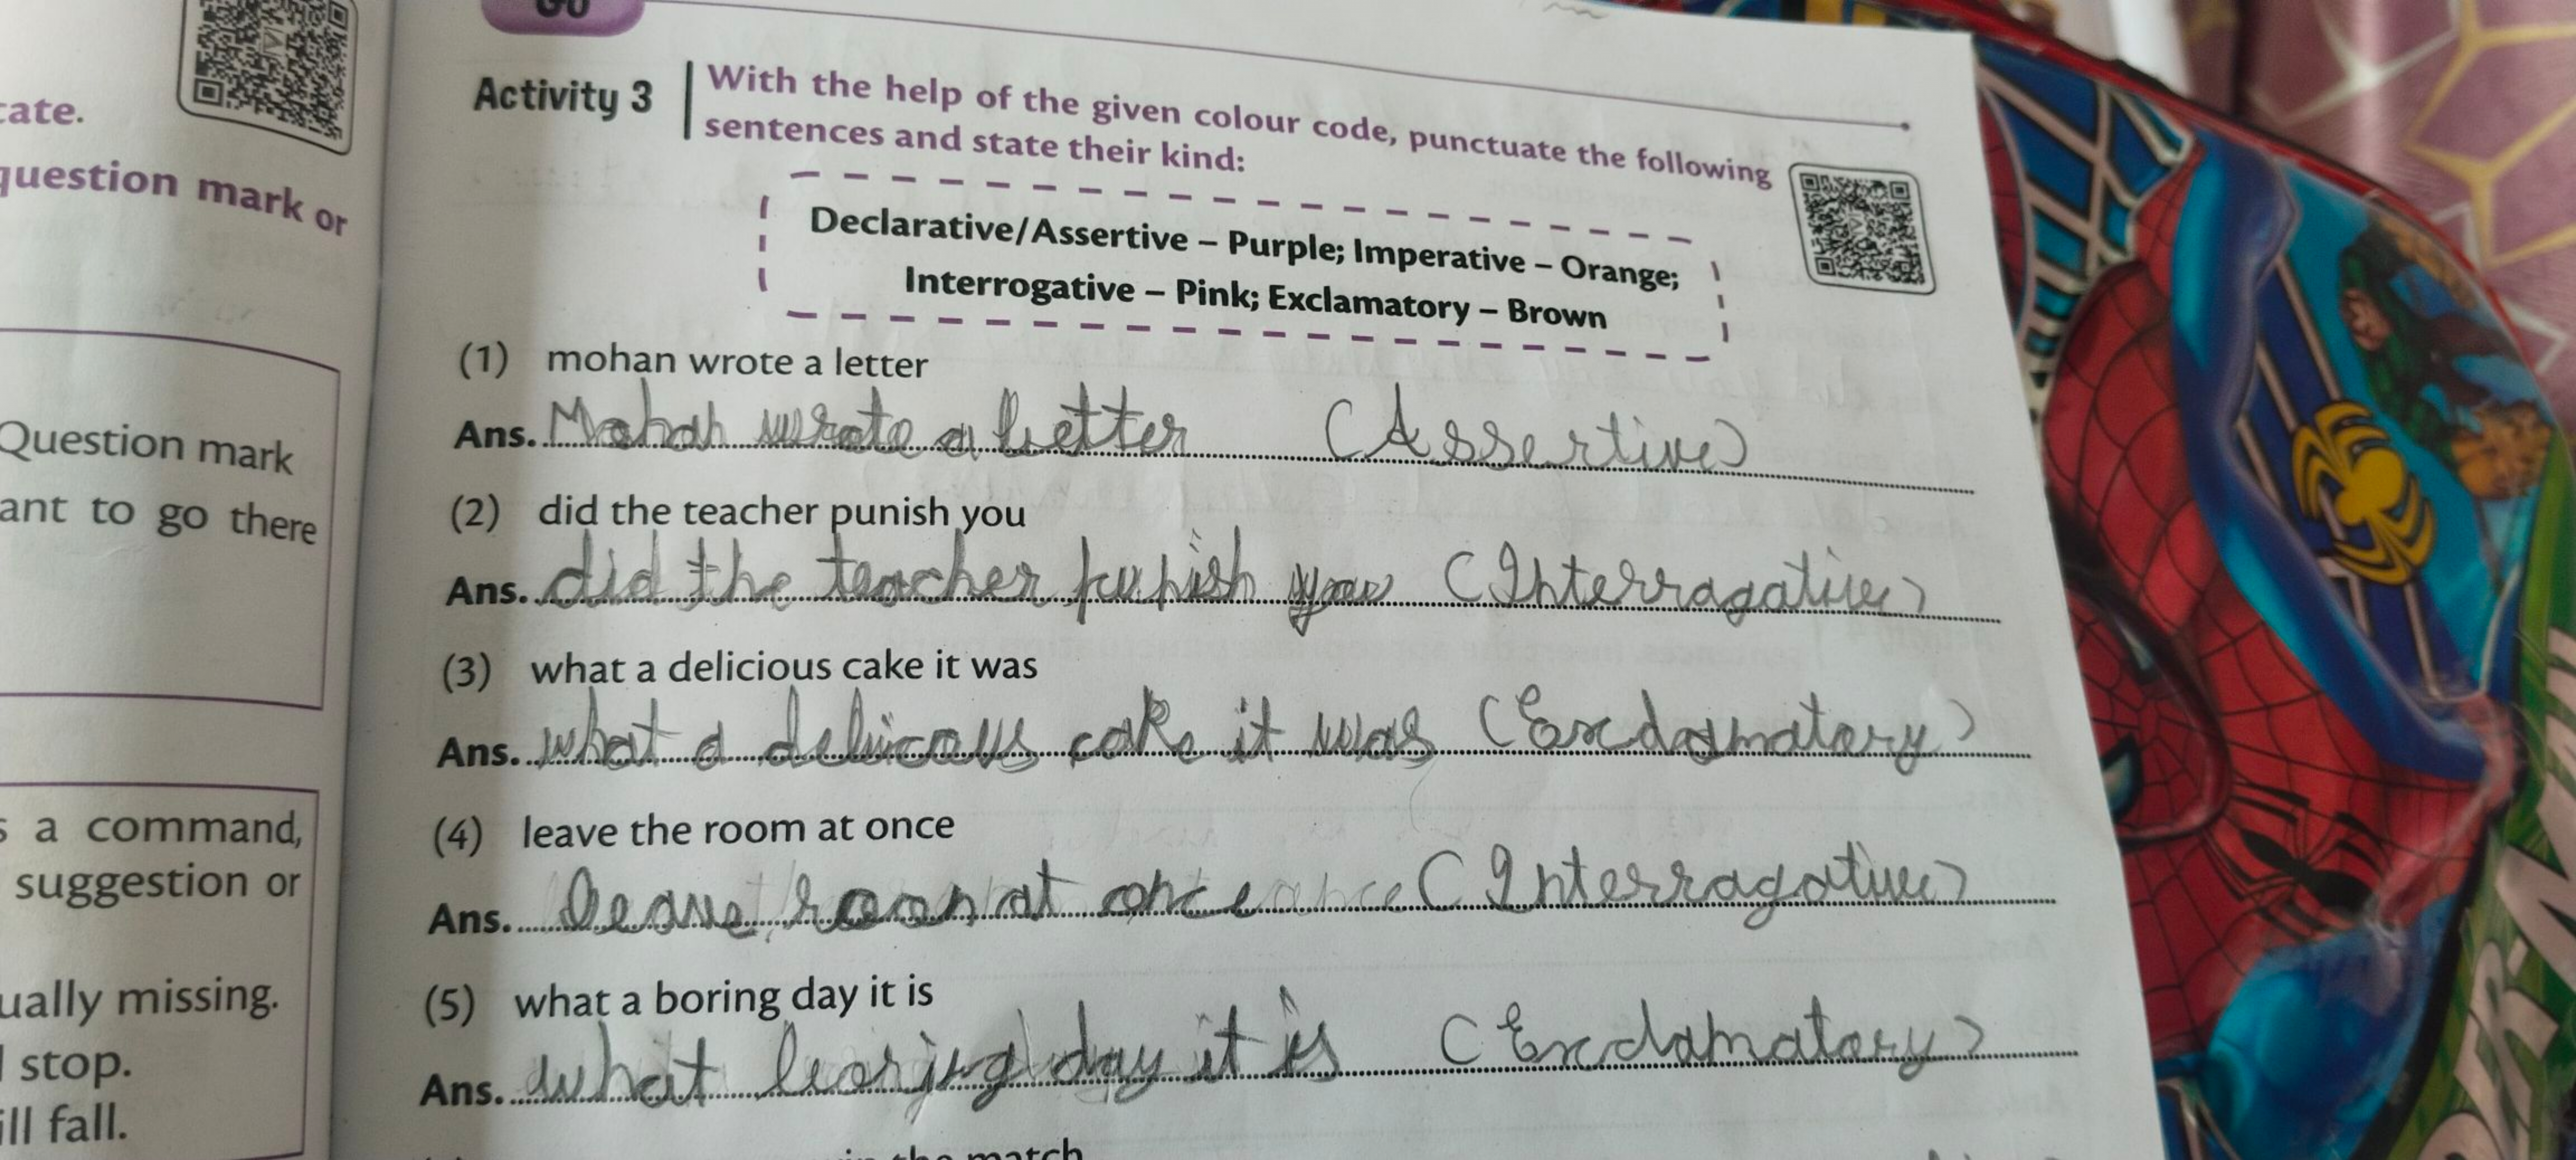 GO
cate.
question mark or
Question mark
ant to go there
s a command,
suggestion or
ually missing.
l stop.
ill fall.
Activity 3
With the help of the given colour code, punctuate the following
sentences and state their kind:
Declarative/Assertive – Purple; Imperative – Orange;
Interrogative – Pink; Exclamatory – Brown
(1) mohan wrote a letter
Ans. Mohan wrote a letter (Assertive)
(2) did the teacher punish you
Ans. did the teacher punish you (Interragative)
(3) what a delicious cake it was
Ans. what a delicious cake it was (Exclamatory)
(4) leave the room at once
Ans. leave room at once (Interragative)
(5) what a boring day it is
Ans. what boring day it is (Exclamatory)
in the match